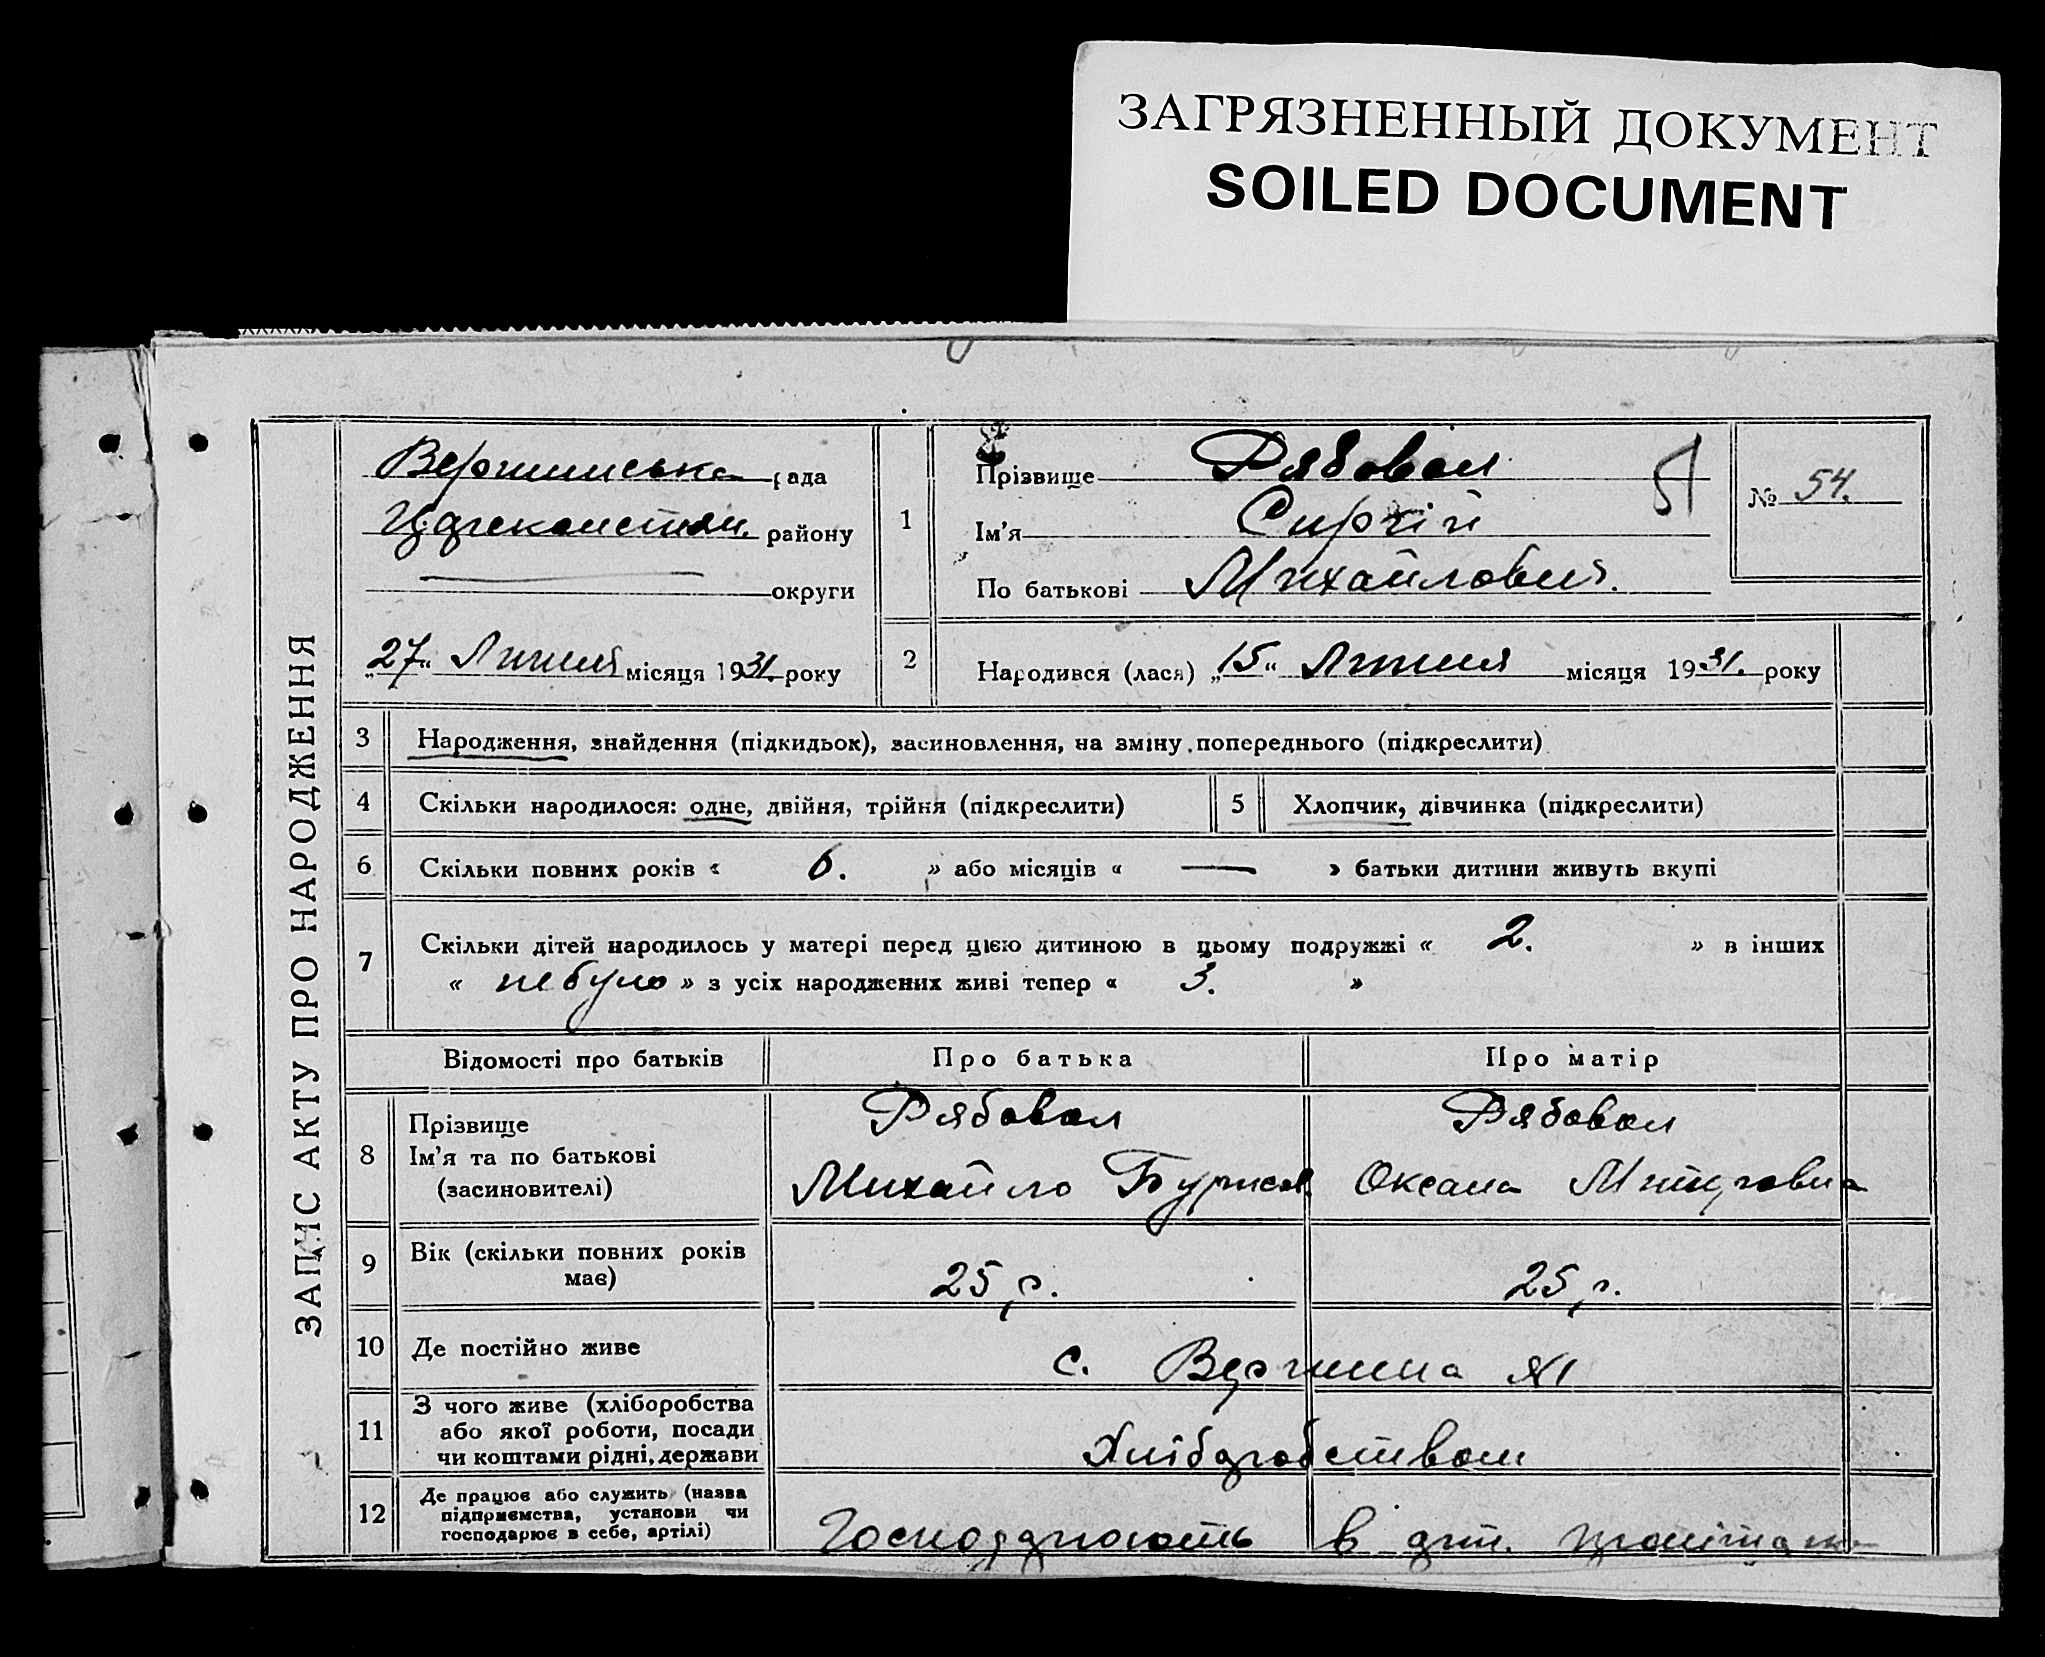 ЗАГРЯЗНЕННЫЙ ДОКУМЕНТ
SOILED DOCUMENT
ЗАПИС АКТУ ПРО НАРОДЖЕННЯ
рада
району
округи
„27“ Липня місяця 1931. року
1
Прізвище Рябовол
Ім'я Сиргій
По батькові Михайлович.
Я
№ 54.
2
Народився (лася) „15“ Липня місяця 1931. року
3 Народження, знайдення (підкидьок), засиновлення, на зміну попереднього (підкреслити)
4 Скільки народилося: одне, двійня, трійня (підкреслити)
5 Хлопчик, дівчинка (підкреслити)
6 Скільки повних років « 6. » або місяців « — » батьки дитини живуть вкупі
7 Скільки дітей народилось у матері перед цією дитиною в цьому подружжі « 2. » в інших
« небуло » з усіх народжених живі тепер « 3. »
Відомості про батьків Про батька Про матір
8 Прізвище
Ім'я та по батькові
(засиновителі)
Рябовол
Михайло
Рябовол
Оксана
9 Вік (скільки повних років
має)
25, р.
25, р.
10 Де постійно живе
с. Вершина №1
11 З чого живе (хліборобства
або якої роботи, посади
чи коштами рідні, держави
Хліборобством
12 Де працює або служить (назва
підприємства, установи чи
господарює в себе, артілі)
Господарюють в арт.